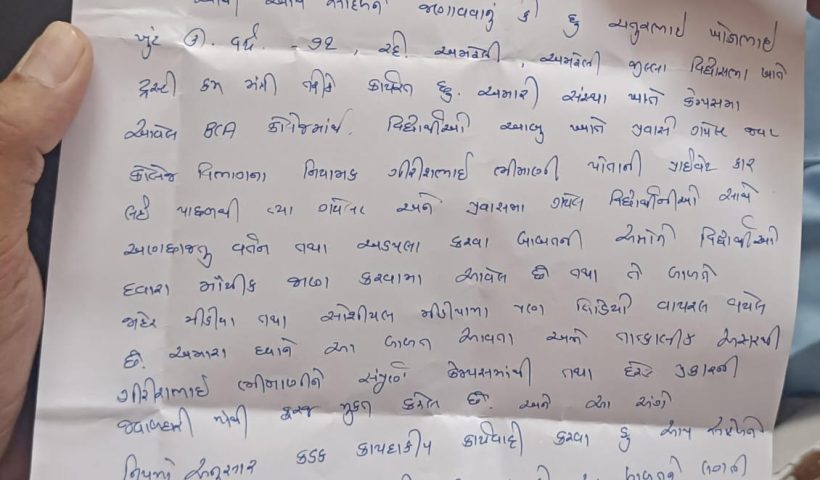 જણાવવાનું કે હું ચતુરભાઈ ખોડાભાઈ
ખુંટ ઉ. વર્ષ. - ૭૨, રહે. અમરેલી, અમરેલી જીલ્લા વિદ્યાસભા ખાતે
ટ્રસ્ટી કમ મંત્રી તરીકે કાર્યરત છું. અમારી સંસ્થા ખાતે કેમ્પસમા
આવેલ BCA કોલેજમાંથી. વિદ્યાર્થીઓ આબુ ખાતે પ્રવાસે ગયેલ જયા
કોલેજ વિભાગના નિયામક ગીરીશભાઈ ભીમાણી પોતાની પ્રાઈવેટ કાર
લઈ પાછળથી ત્યા ગયેલ અને પ્રવાસમા ગયેલ વિદ્યાર્થીનીઓ સાથે
અણછાજતુ વર્તન તથા અડપલા કરવા બાબતની અમોને વિદ્યાર્થીઓ
દ્વારા મૌખીક જાણ કરવામા આવેલ છે તથા તે બાબતે
જાહેર મીડીયા તથા સોશીયલ મીડીયામા પણ વિડિયો વાયરલ થયેલ
છે. અમારા ધ્યાને આ બાબત આવતા અમે તાત્કાલીક અસરથી
ગીરીશભાઈ ભીમાણીને સંપુર્ણ કેમ્પસમાંથી તથા દરેક પ્રકારની
જવાબદારી માંથી ફરજ મુક્ત કરેલ છે. અને આ અંગે
નિયમો અનુસાર કડક કાયદાકીય કાર્યવાહી કરવા હુ આપ
બાબતે